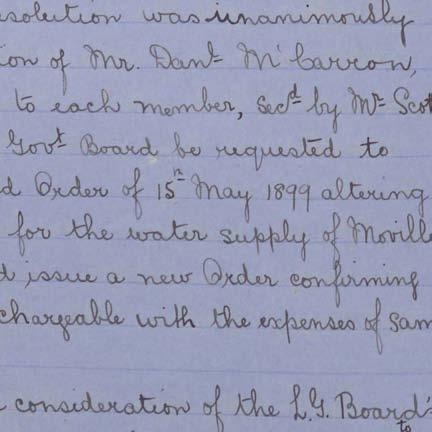 esolution was unanimously
ion of Mr. Danl McCarron,
to each member, Secd by Mr Scot
Govt Board be requested to
d Order of 15th May 1899 altering
for the water supply of Moville
d issue a new Order confirming
chargeable with the expenses of sam
consideration of the L.G. Board's
to